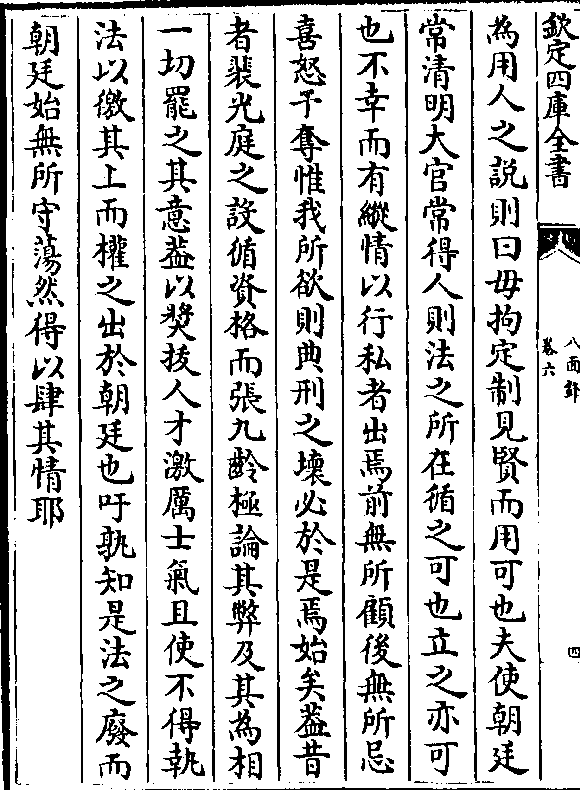 欽定四庫全書
八面鋒
卷六
四
為用人之說則曰毋拘定制見賢而用可也夫使朝廷
常清明大官常得人則法之所在循之可也立之亦可
也不幸而有縱情以行私者出焉前無所顧後無所忌
喜怒予奪惟我所欲則典刑之壞必於是焉始矣葢昔
者裴光庭之設循資格而張九齡極論其弊及其為相
一切罷之其意葢以奬拔人才激厲士氣且使不得執
法以徼其上而權之出於朝廷也吁孰知是法之廢而
朝廷始無所守蕩然得以肆其情耶